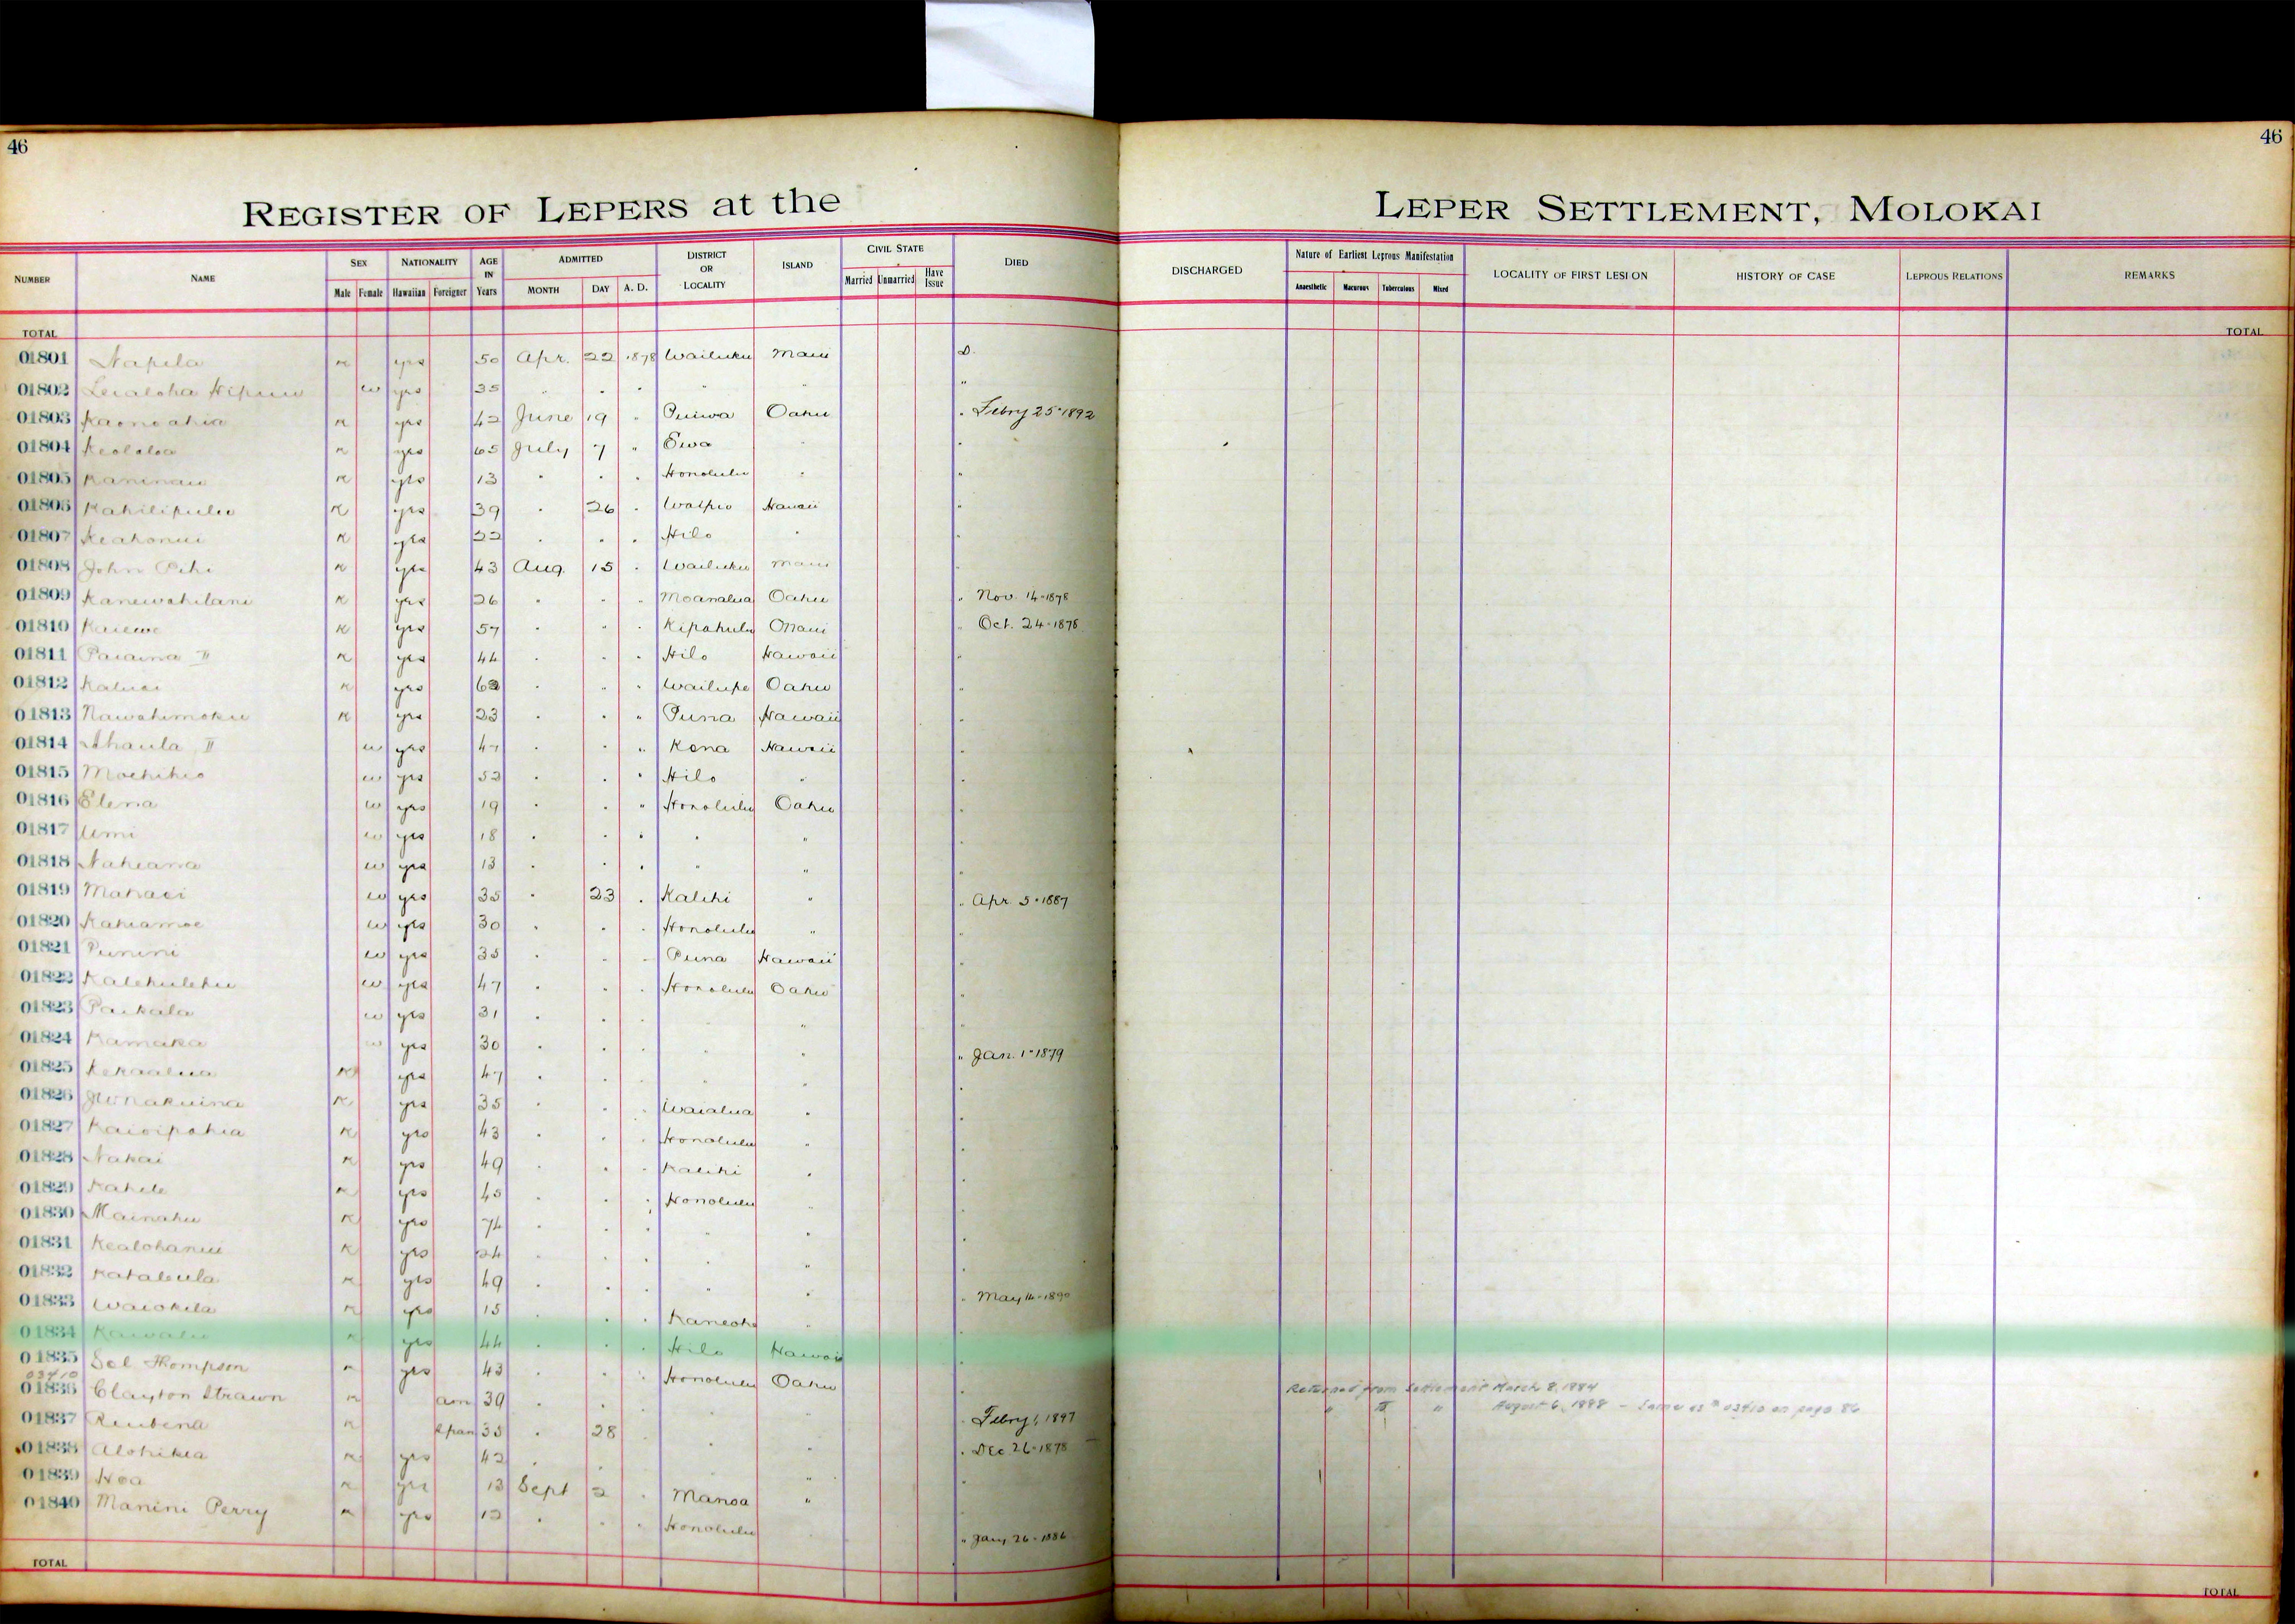 46
46
REGISTER OF LEPERS at the LEPER SETTLEMENT, MOLOKAI
NUMBER NAME SEX Male Female NATIONALITY Hawaiian Foreigner AGE IN Years ADMITTED MONTH DAY A. D. DISTRICT OR LOCALITY ISLAND CIVIL STATE Married Unmarried Have Issue DIED DISCHARGED Nature of Earliest Leprous Manifestation Anaesthetic Macurous Tuberculous Mixed LOCALITY OF FIRST LESION HISTORY OF CASE LEPROUS RELATIONS REMARKS
TOTAL TOTAL
01801 Napela K yes 50 Apr. 22 1878 Wailuku Maui D.
01802 Lealoha W yes 35 " " " " " "
01803 Kaonoahia K yes 42 June 19 " Puiwa Oahu " Febry 25 1892
01804 Keololoa K yes 65 July 7 " Ewa " "
01805 Kaninau K yes 13 " " " Honolulu " "
01806 Kahilipulu K yes 39 " 26 " Waipio Hawaii "
01807 Keahonui K yes 22 " " " Hilo " "
01808 John K yes 43 Aug. 15 " Wailuku Maui "
01809 Kanewahilani K yes 26 " " " Moanalua Oahu " Nov. 14-1878
01810 K yes 57 " " " Kipahulu Maui " Oct. 24-1878
01811 Paiaina II K yes 44 " " " Hilo Hawaii "
01812 Kaluai K yes 62 " " " Wailupe Oahu "
01813 Nawahimoku K yes 23 " " " Puna Hawaii "
01814 Ahaula II W yes 47 " " " Kona Hawaii "
01815 W yes 52 " " " Hilo " "
01816 Elena W yes 19 " " " Honolulu Oahu "
01817 Umi W yes 18 " " " " " "
01818 Nahiana W yes 13 " " " " " "
01819 Mahaei W yes 35 " 23 " Kalihi " " Apr. 5-1887
01820 Kahiamoe W yes 30 " " " Honolulu " "
01821 Punini W yes 35 " " " Puna Hawaii "
01822 Kalehulehu W yes 47 " " " Honolulu Oahu "
01823 Paikala W yes 31 " " " " " "
01824 Kamaka W yes 30 " " " " " " Jan. 1-1879
01825 Kekaalua K yes 47 " " " " " "
01826 K yes 35 " " " Waialua " "
01827 Kaioipahia K yes 43 " " " Honolulu " "
01828 Nakai K yes 49 " " " Kalihi " "
01829 Kahele K yes 45 " " " Honolulu " "
01830 Mainahu K yes 74 " " " " " "
01831 Kealohanui K yes 24 " " " " " "
01832 K yes 49 " " " " " " May 14-1890
01833 Waiokila K yes 15 " " " Kaneohe " "
01834 Kawalu K yes 44 " " " Hilo Hawaii "
01835 Sol Thompson K yes 43 " " " Honolulu Oahu "
03410
01836 Clayton Strawn K am 39 " " " " " " Febry 1, 1897 Returned from Settlement March 8, 1884
" " " August 6, 1888 - Same as # 03410 on page 86
01837 Reubena K 35 " 28 " " " " Dec 26-1878
01838 Alohikea K yes 42 " " " " " "
01839 Hoa K yes 13 Sept 2 " Manoa " "
01840 Manini Perry K yes 12 " " " Honolulu " Jany 26-1886
TOTAL TOTAL